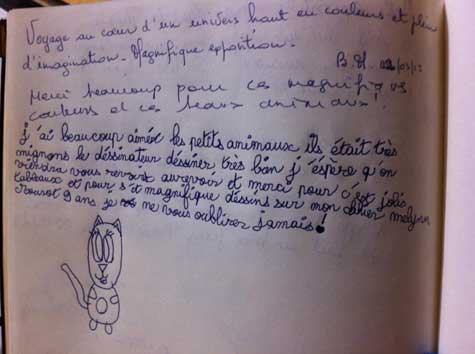 Voyage au cœur d'un univers haut en couleurs et plein
d'imagination. Magnifique exposition.
B. H. /03/12
Merci beaucoup pour ces magnifiques
couleurs et ces beaux animaux!
j'ai beaucoup aimée les petits animaux ils était très
mignons le déssinateur déssiner très bien j'éspère q'on
viendra vous revoir aurevoir et merci pour c'est jolis
tableaux et pour s'et magnifique dessins sur mon cahier
9 ans je ne vous oublirez jamais!